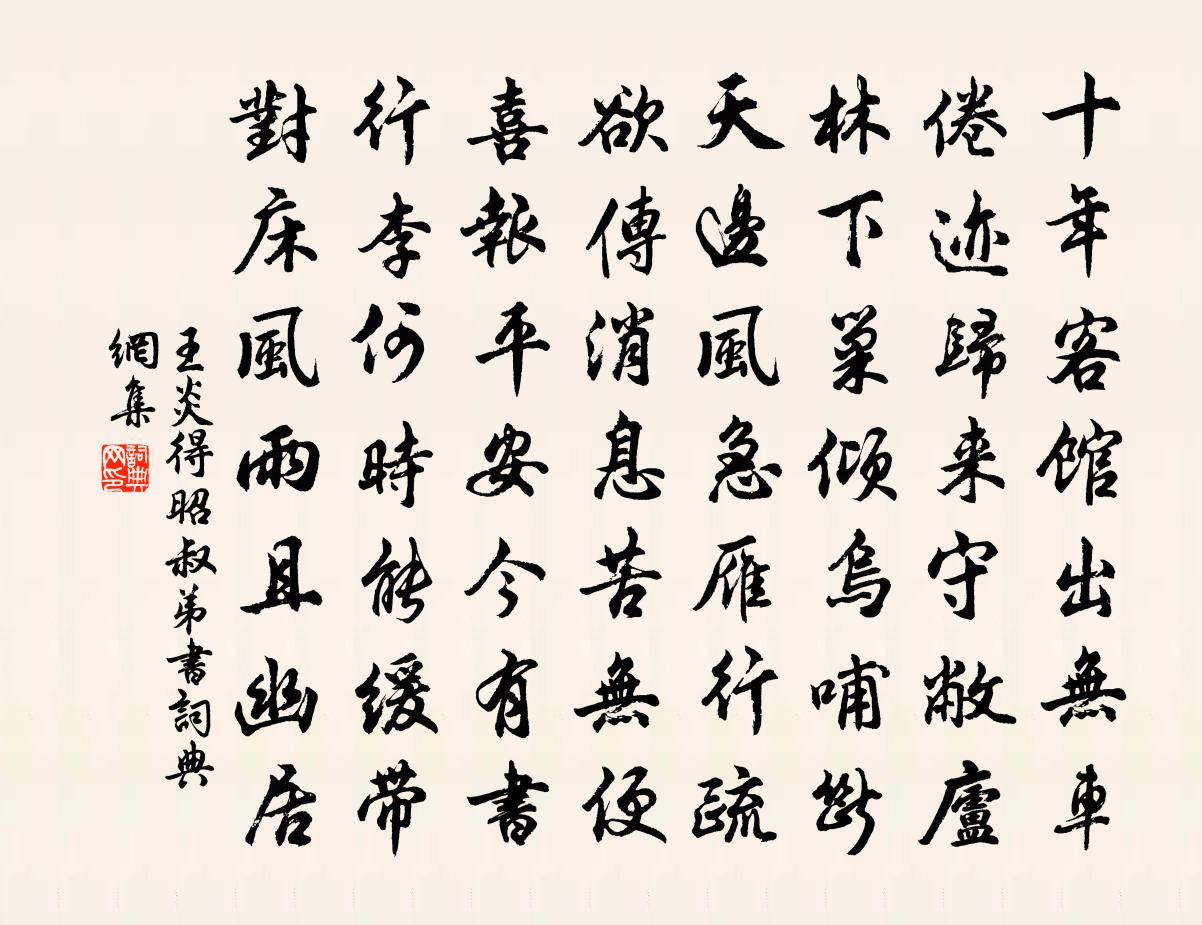 十年客館出無車
倦迹歸来守敝廬
林下巢傾烏哺斷
天邊風急雁行疏
欲傳消息苦無便
喜報平安今有書
行李何時能緩帶
對床風雨且幽居
王炎得昭叔弟書詞典
網集
詞典
网印